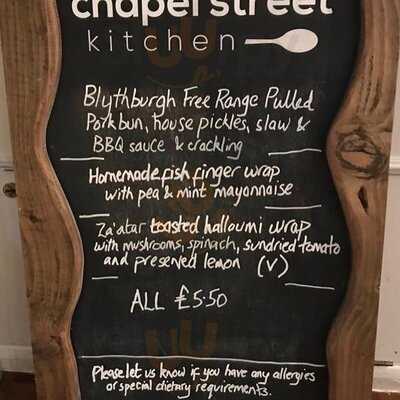 chapel street
kitchen
Blythburgh Free Range Pulled
Pork bun, house pickles, slaw &
BBQ sauce & crackling
Homemade fish finger wrap
with pea & mint mayonnaise
Za'atar toasted halloumi wrap
with mushrooms, spinach, sundried tomato
and preserved lemon (V)
ALL £5.50
Please let us know if you have any allergies
or special dietary requirements.